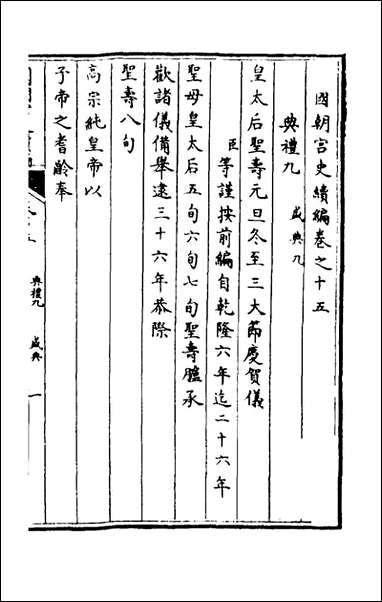 國朝宮史續編卷之十五
典禮九 盛典九
皇太后聖壽元旦冬至三大節慶賀儀
臣等謹按前編自乾隆六年迄二十六年
聖母皇太后五旬六旬七旬聖壽臚承
歡諸儀備舉逮三十六年恭際
聖壽八旬
高宗純皇帝以
子帝之耆齡奉
典禮九 盛典 一